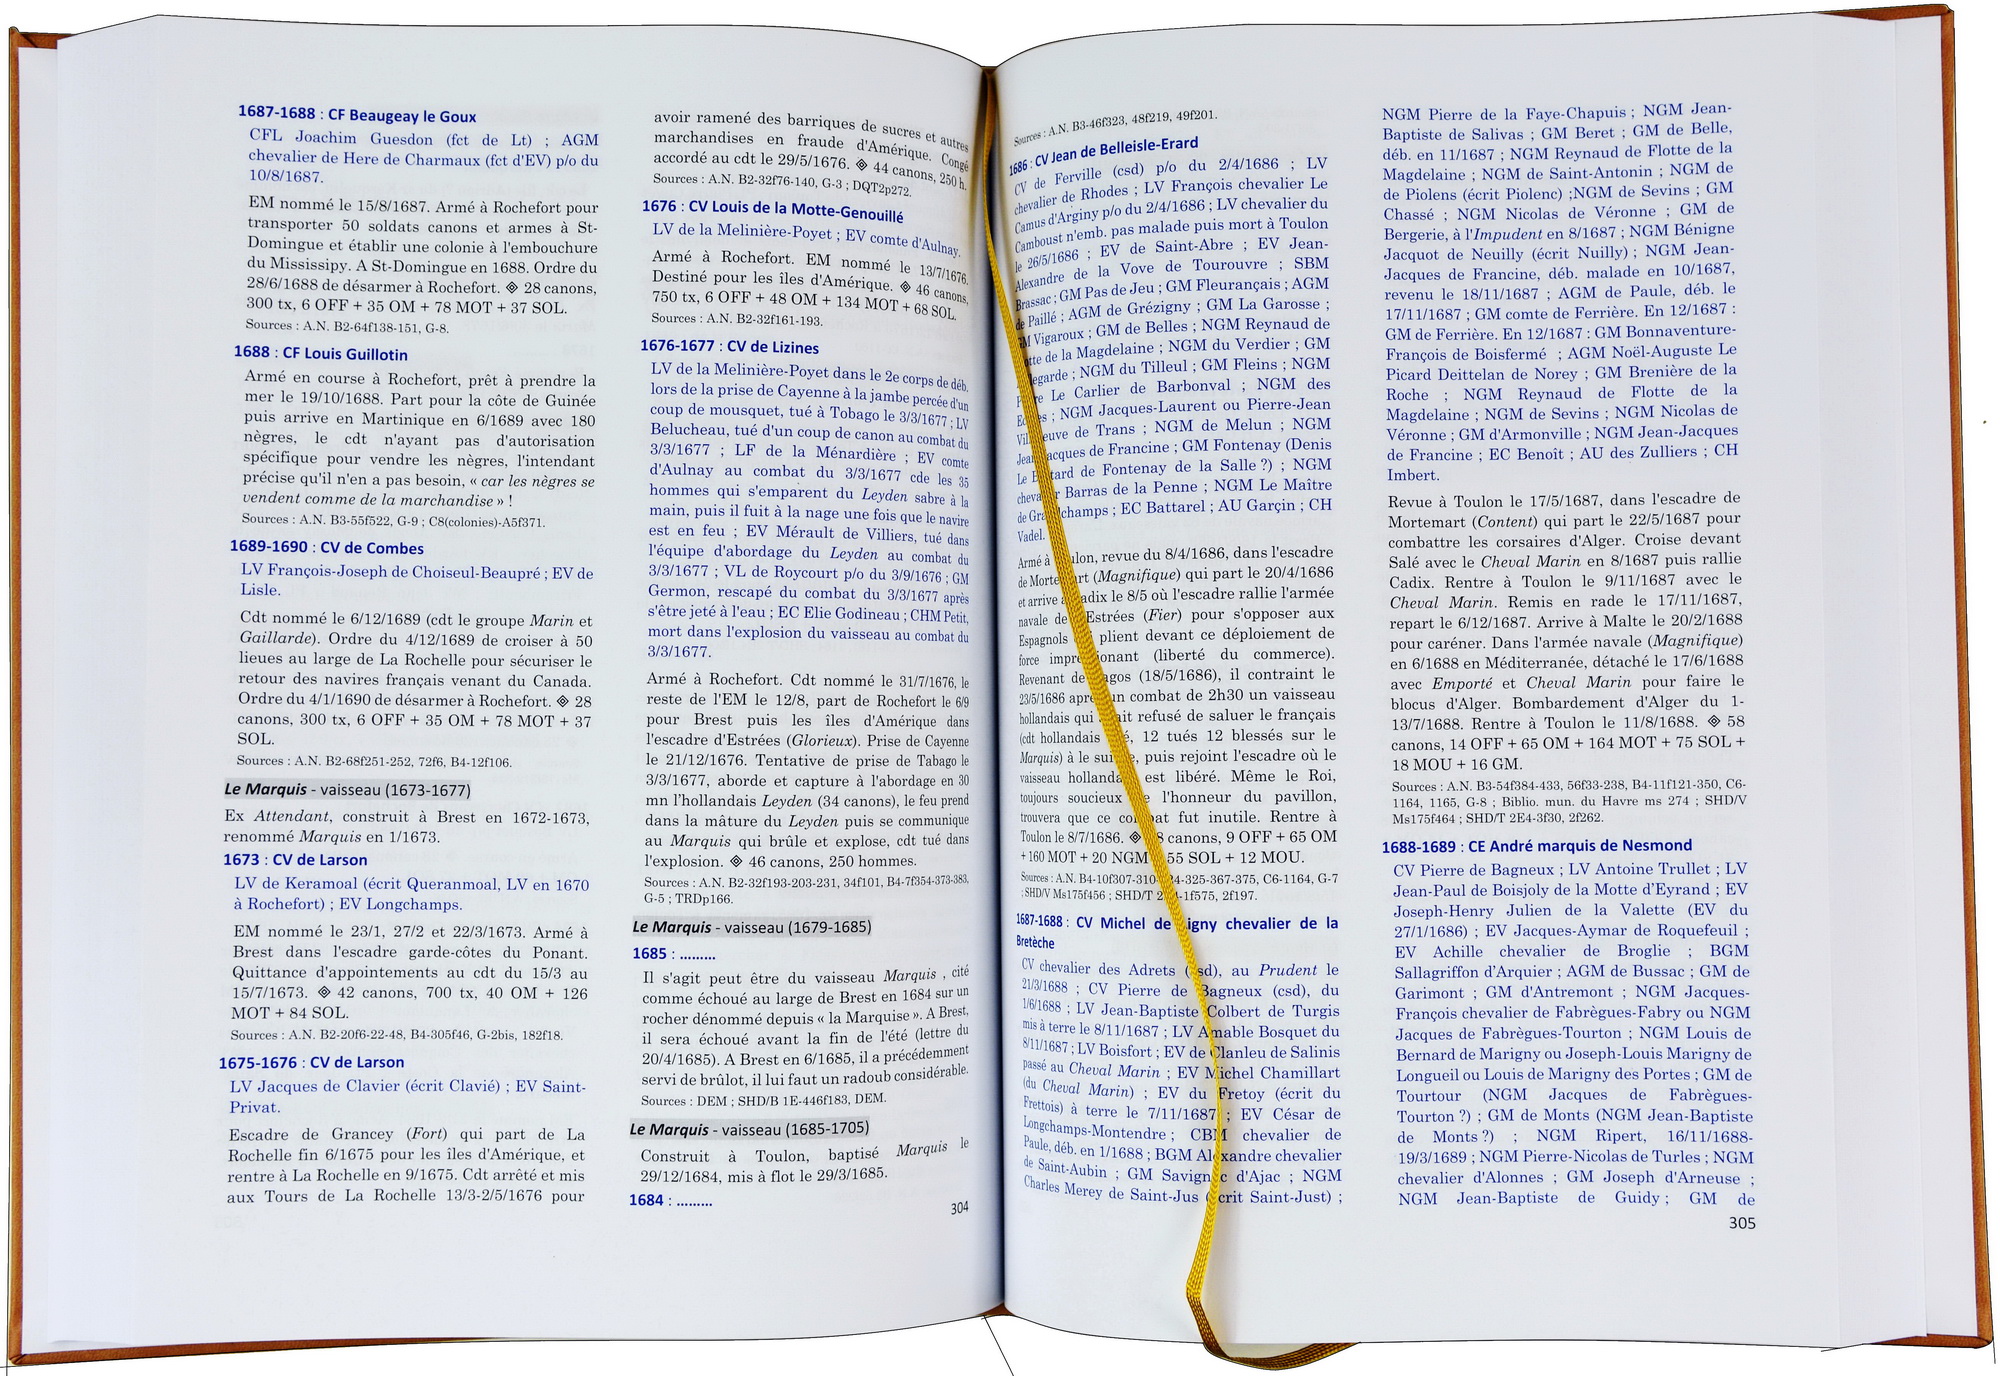 1687-1688 : CF Beaugeay le Goux
CFL Joachim Guesdon (fct de Lt) ; AGM
chevalier de Here de Charmaux (fct d'EV) p/o du
10/8/1687.
EM nommé le 15/8/1687. Armé à Rochefort pour
transporter 50 soldats canons et armes à St-
Domingue et établir une colonie à l'embouchure
du Mississipy. A St-Domingue en 1688. Ordre du
28/6/1688 de désarmer à Rochefort. ◈ 28 canons,
300 tx, 6 OFF + 35 OM + 78 MOT + 37 SOL.
Sources : A.N. B2-64f138-151, G-8.
1688 : CF Louis Guillotin
Armé en course à Rochefort, prêt à prendre la
mer le 19/10/1688. Part pour la côte de Guinée
puis arrive en Martinique en 6/1689 avec 180
nègres, le cdt n'ayant pas d'autorisation
spécifique pour vendre les nègres, l'intendant
précise qu'il n'en a pas besoin, « car les nègres se
vendent comme de la marchandise » !
Sources : A.N. B3-55f522, G-9 ; C8(colonies)-A5f371.
1689-1690 : CV de Combes
LV François-Joseph de Choiseul-Beaupré ; EV de
Lisle.
Cdt nommé le 6/12/1689 (cdt le groupe Marin et
Gaillarde). Ordre du 4/12/1689 de croiser à 50
lieues au large de La Rochelle pour sécuriser le
retour des navires français venant du Canada.
Ordre du 4/1/1690 de désarmer à Rochefort. ◈ 28
canons, 300 tx, 6 OFF + 35 OM + 78 MOT + 37
SOL.
Sources : A.N. B2-68f251-252, 72f6, B4-12f106.
Le Marquis - vaisseau (1673-1677)
Ex Attendant, construit à Brest en 1672-1673,
renommé Marquis en 1/1673.
1673 : CV de Larson
LV de Keramoal (écrit Queranmoal, LV en 1670
à Rochefort) ; EV Longchamps.
EM nommé le 23/1, 27/2 et 22/3/1673. Armé à
Brest dans l'escadre garde-côtes du Ponant.
Quittance d'appointements au cdt du 15/3 au
15/7/1673. ◈ 42 canons, 700 tx, 40 OM + 126
MOT + 84 SOL.
Sources : A.N. B2-20f6-22-48, B4-305f46, G-2bis, 182f18.
1675-1676 : CV de Larson
LV Jacques de Clavier (écrit Clavié) ; EV Saint-
Privat.
Escadre de Grancey (Fort) qui part de La
Rochelle fin 6/1675 pour les îles d'Amérique, et
rentre à La Rochelle en 9/1675. Cdt arrêté et mis
aux Tours de La Rochelle 13/3-2/5/1676 pour
avoir ramené des barriques de sucres et autres
marchandises en fraude d'Amérique. Congé
accordé au cdt le 29/5/1676. ◈ 44 canons, 250 h.
Sources : A.N. B2-32f76-140, G-3 ; DQT2p272.
1676 : CV Louis de la Motte-Genouillé
LV de la Melinière-Poyet ; EV comte d'Aulnay.
Armé à Rochefort. EM nommé le 13/7/1676.
Destiné pour les îles d'Amérique. ◈ 46 canons,
750 tx, 6 OFF + 48 OM + 134 MOT + 68 SOL.
Sources : A.N. B2-32f161-193.
1676-1677 : CV de Lizines
LV de la Melinière-Poyet dans le 2e corps de déb.
lors de la prise de Cayenne à la jambe percée d'un
coup de mousquet, tué à Tobago le 3/3/1677 ; LV
Belucheau, tué d'un coup de canon au combat du
3/3/1677 ; LF de la Ménardière ; EV comte
d'Aulnay au combat du 3/3/1677 cde les 35
hommes qui s'emparent du Leyden sabre à la
main, puis il fuit à la nage une fois que le navire
est en feu ; EV Mérault de Villiers, tué dans
l'équipe d'abordage du Leyden au combat du
3/3/1677 ; VL de Roycourt p/o du 3/9/1676 ; GM
Germon, rescapé du combat du 3/3/1677 après
s'être jeté à l'eau ; EC Elie Godineau ; CHM Petit,
mort dans l'explosion du vaisseau au combat du
3/3/1677.
Armé à Rochefort. Cdt nommé le 31/7/1676, le
reste de l'EM le 12/8, part de Rochefort le 6/9
pour Brest puis les îles d'Amérique dans
l'escadre d'Estrées (Glorieux). Prise de Cayenne
le 21/12/1676. Tentative de prise de Tabago le
3/3/1677, aborde et capture à l'abordage en 30
mn l'hollandais Leyden (34 canons), le feu prend
dans la mâture du Leyden puis se communique
au Marquis qui brûle et explose, cdt tué dans
l'explosion. ◈ 46 canons, 250 hommes.
Sources : A.N. B2-32f193-203-231, 34f101, B4-7f354-373-383,
G-5 ; TRDp166.
Le Marquis - vaisseau (1679-1685)
1685 : .........
Il s'agit peut être du vaisseau Marquis , cité
comme échoué au large de Brest en 1684 sur un
rocher dénommé depuis « la Marquise ». A Brest,
il sera échoué avant la fin de l'été (lettre du
20/4/1685). A Brest en 6/1685, il a précédemment
servi de brûlot, il lui faut un radoub considérable.
Sources : DEM ; SHD/B 1E-446f183, DEM.
Le Marquis - vaisseau (1685-1705)
Construit à Toulon, baptisé Marquis le
29/12/1684, mis à flot le 29/3/1685.
1684 : .........
304
Sources : A.N. B3-46f323, 48f219, 49f201.
1686 : CV Jean de Belleisle-Erard
CV de Ferville (csd) p/o du 2/4/1686 ; LV
chevalier de Rhodes ; LV François chevalier Le
Camus d'Arginy p/o du 2/4/1686 ; LV chevalier du
Camboust n'emb. pas malade puis mort à Toulon
le 26/5/1686 ; EV de Saint-Abre ; EV Jean-
Alexandre de la Vove de Tourouvre ; SBM
Brassac ; GM Pas de Jeu ; GM Fleurançais ; AGM
de Paillé ; AGM de Grézigny ; GM La Garosse ;
GM Vigaroux ; GM de Belles ; NGM Reynaud de
de la Magdelaine ; NGM du Verdier ; GM
; NGM du Tilleul ; GM Fleins ; NGM
Le Carlier de Barbonval ; NGM des
; NGM Jacques-Laurent ou Pierre-Jean
de Trans ; NGM de Melun ; NGM
de Francine ; GM Fontenay (Denis
Le de Fontenay de la Salle ?) ; NGM
Barras de la Penne ; NGM Le Maître
de ; EC Battarel ; AU Garçin ; CH
Vadel.
Armé à revue du 8/4/1686, dans l'escadre
de (Magnifique) qui part le 20/4/1686
et arrive le 8/5 où l'escadre rallie l'armée
navale de (Fier) pour s'opposer aux
Espagnols plient devant ce déploiement de
force (liberté du commerce).
Revenant de (18/5/1686), il contraint le
23/5/1686 combat de 2h30 un vaisseau
hollandais qui refusé de saluer le français
(cdt hollandais 12 tués 12 blessés sur le
Marquis) à le puis rejoint l'escadre où le
vaisseau est libéré. Même le Roi,
toujours soucieux l'honneur du pavillon,
trouvera que ce fut inutile. Rentre à
Toulon le 8/7/1686. ◈ canons, 9 OFF + 65 OM
+ 160 MOT + 20 NGM 55 SOL + 12 MOU.
Sources : A.N. B4-10f307-310- -325-367-375, C6-1164, G-7
; SHD/V Ms175f456 ; SHD/T -1f575, 2f197.
1687-1688 : CV Michel de chevalier de la
Bretèche
CV chevalier des Adrets au Prudent le
21/3/1688 ; CV Pierre de Bagneux (csd), du
1/6/1688 ; LV Jean-Baptiste Colbert de Turgis
mis à terre le 8/11/1687 ; LV Amable Bosquet du
8/11/1687 ; LV Boisfort ; EV de Clanleu de Salinis
passé au Cheval Marin ; EV Michel Chamillart
(du Cheval Marin) ; EV du Fretoy (écrit du
Frettois) à terre le 7/11/1687 ; EV César de
Longchamps-Montendre ; CBM chevalier de
Paule, déb. en 1/1688 ; BGM Alexandre chevalier
de Saint-Aubin ; GM d'Ajac ; NGM
Charles Merey de Saint-Jus (écrit Saint-Just) ;
NGM Pierre de la Faye-Chapuis ; NGM Jean-
Baptiste de Salivas ; GM Beret ; GM de Belle,
déb. en 11/1687 ; NGM Reynaud de Flotte de la
Magdelaine ; NGM de Saint-Antonin ; NGM de
de Piolens (écrit Piolenc) ;NGM de Sevins ; GM
Chassé ; NGM Nicolas de Véronne ; GM de
Bergerie, à l'Impudent en 8/1687 ; NGM Bénigne
Jacquot de Neuilly (écrit Nuilly) ; NGM Jean-
Jacques de Francine, déb. malade en 10/1687,
revenu le 18/11/1687 ; AGM de Paule, déb. le
17/11/1687 ; GM comte de Ferrière. En 12/1687 :
GM de Ferrière. En 12/1687 : GM Bonnaventure-
François de Boisfermé ; AGM Noël-Auguste Le
Picard Deittelan de Norey ; GM Brenière de la
Roche ; NGM Reynaud de Flotte de la
Magdelaine ; NGM de Sevins ; NGM Nicolas de
Véronne ; GM d'Armonville ; NGM Jean-Jacques
de Francine ; EC Benoît ; AU des Zulliers ; CH
Imbert.
Revue à Toulon le 17/5/1687, dans l'escadre de
Mortemart (Content) qui part le 22/5/1687 pour
combattre les corsaires d'Alger. Croise devant
Salé avec le Cheval Marin en 8/1687 puis rallie
Cadix. Rentre à Toulon le 9/11/1687 avec le
Cheval Marin. Remis en rade le 17/11/1687,
repart le 6/12/1687. Arrive à Malte le 20/2/1688
pour caréner. Dans l'armée navale (Magnifique)
en 6/1688 en Méditerranée, détaché le 17/6/1688
avec Emporté et Cheval Marin pour faire le
blocus d'Alger. Bombardement d'Alger du 1-
13/7/1688. Rentre à Toulon le 11/8/1688. ◈ 58
canons, 14 OFF + 65 OM + 164 MOT + 75 SOL +
18 MOU + 16 GM.
Sources : A.N. B3-54f384-433, 56f33-238, B4-11f121-350, C6-
1164, 1165, G-8 ; Biblio. mun. du Havre ms 274 ; SHD/V
Ms175f464 ; SHD/T 2E4-3f30, 2f262.
1688-1689 : CE André marquis de Nesmond
CV Pierre de Bagneux ; LV Antoine Trullet ; LV
Jean-Paul de Boisjoly de la Motte d'Eyrand ; EV
Joseph-Henry Julien de la Valette (EV du
27/1/1686) ; EV Jacques-Aymar de Roquefeuil ;
EV Achille chevalier de Broglie ; BGM
Sallagriffon d'Arquier ; AGM de Bussac ; GM de
Garimont ; GM d'Antremont ; NGM Jacques-
François chevalier de Fabrègues-Fabry ou NGM
Jacques de Fabrègues-Tourton ; NGM Louis de
Bernard de Marigny ou Joseph-Louis Marigny de
Longueil ou Louis de Marigny des Portes ; GM de
Tourtour (NGM Jacques de Fabrègues-
Tourton ?) ; GM de Monts (NGM Jean-Baptiste
de Monts ?) ; NGM Ripert, 16/11/1688-
19/3/1689 ; NGM Pierre-Nicolas de Turles ; NGM
chevalier d'Alonnes ; GM Joseph d'Arneuse ;
NGM Jean-Baptiste de Guidy ; GM de
305